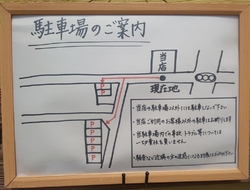 駐車場のご案内
当店
現在地
P
P
P
P
P
P
P
・当店の駐車場以外には駐車しないで下さい
・当店ご利用のお客様以外の駐車はお断りします
・当駐車場内での事故、トラブル等については
一切責任を負いません